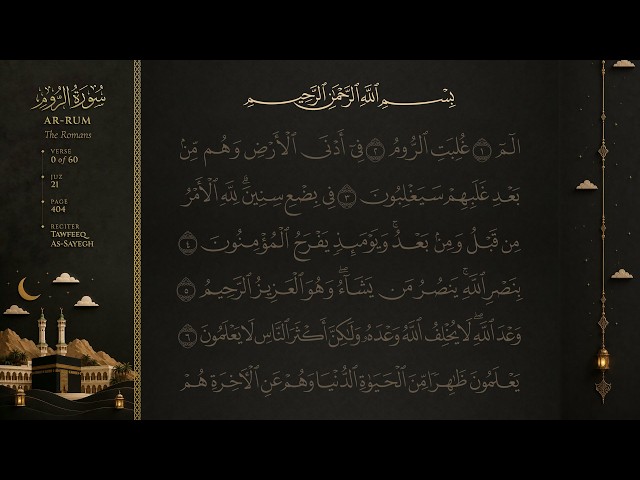 سُورَةُ الرُّومِ
AR-RUM
The Romans
VERSE
0 of 60
JUZ
21
PAGE
404
RECITER
TAWFEEQ
AS-SAYEGH
بِسْمِ ٱللَّهِ ٱلرَّحْمَٰنِ ٱلرَّحِيمِ
الٓمٓ ١ غُلِبَتِ ٱلرُّومُ ٢ فِىٓ أَدْنَى ٱلْأَرْضِ وَهُم مِّنۢ
بَعْدِ غَلَبِهِمْ سَيَغْلِبُونَ ٣ فِى بِضْعِ سِنِينَ ۗ لِلَّهِ ٱلْأَمْرُ
مِن قَبْلُ وَمِنۢ بَعْدُ ۚ وَيَوْمَئِذٍ يَفْرَحُ ٱلْمُؤْمِنُونَ ٤
بِنَصْرِ ٱللَّهِ ۚ يَنصُرُ مَن يَشَآءُ ۖ وَهُوَ ٱلْعَزِيزُ ٱلرَّحِيمُ ٥
وَعْدَ ٱللَّهِ ۖ لَا يُخْلِفُ ٱللَّهُ وَعْدَهُۥ وَلَٰكِنَّ أَكْثَرَ ٱلنَّاسِ لَا يَعْلَمُونَ ٦
يَعْلَمُونَ ظَٰهِرًا مِّنَ ٱلْحَيَوٰةِ ٱلدُّنْيَا وَهُمْ عَنِ ٱلْءَاخِرَةِ هُمْ